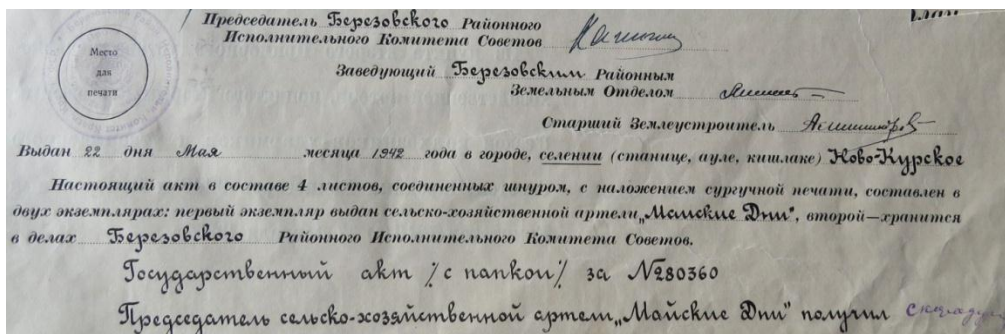 Председатель Березовского Районного
Исполнительного Комитета Советов
Место
для
печати
Заведующий Березовским Районным
Земельным Отделом
Старший Землеустроитель
Выдан 22 дня Мая месяца 1942 года в городе, селении (станице, ауле, кишлаке) Ново-Курское
Настоящий акт в составе 4 листов, соединенных шнуром, с наложением сургучной печати, составлен в
двух экземплярах: первый экземпляр выдан сельско-хозяйственной артели „Майские Дни", второй—хранится
в делах Березовского Районного Исполнительного Комитета Советов.
Государственный акт /с папкой/ за №280360
Председатель сельско-хозяйственной артели „Майские Дни" получил